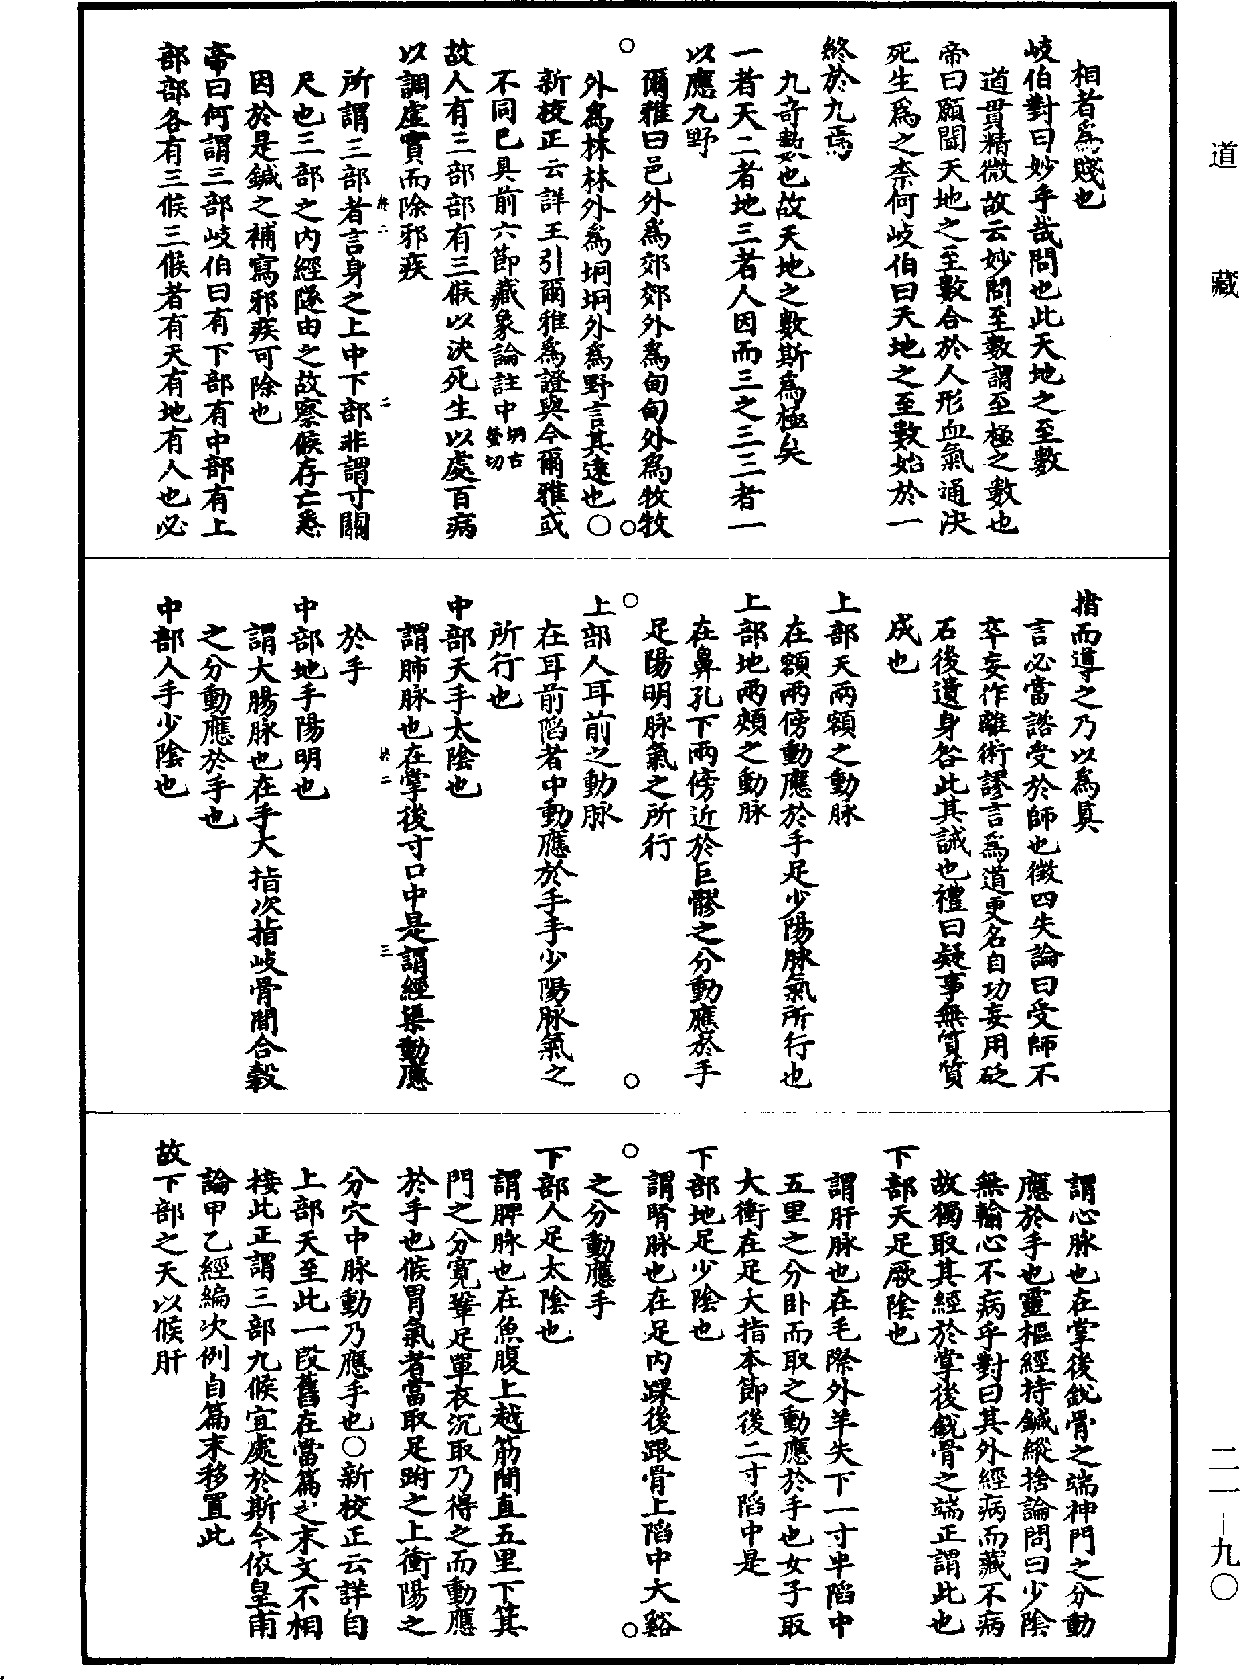 道藏
相者爲賤也
岐伯對曰妙乎哉問也此天地之至數
道貫精微故云妙問至數謂至極之數也
帝曰願聞天地之至數合於人形血氣通決
死生爲之柰何岐伯曰天地之至數始於一
終於九焉
九奇數也故天地之數斯爲極矣
一者天二者地三者人因而三之三三者一
以應九野
爾雅曰邑外爲郊郊外爲甸甸外爲牧牧
外爲林林外爲坰坰外爲野言其遠也○
新校正云詳王引爾雅爲證與今爾雅或
不同已具前六節藏象論註中坰古螢切
故人有三部部有三候以決死生以處百病
以調虛實而除邪疾
所謂三部者言身之上中下部非謂寸關
尺也三部之內經隧由之故察候存亡悉
因於是鍼之補寫邪疾可除也
帝曰何謂三部岐伯曰有下部有中部有上
部部各有三候三候者有天有地有人也必
指而導之乃以爲眞
言必當諮受於師也徵四失論曰受師不
卒妄作雜術謬言爲道更名自功妄用砭
石後遺身咎此其誠也禮曰疑事無質質
成也
上部天兩額之動脉
在額兩傍動應於手足少陽脉氣所行也
上部地兩頰之動脉
在鼻孔下兩傍近於巨髎之分動應於手
足陽明脉氣之所行
上部人耳前之動脉
在耳前陷者中動應於手手少陽脉氣之
所行也
中部天手太陰也
謂肺脉也在掌後寸口中是謂經渠動應
於手
中部地手陽明也
謂大腸脉也在手大指次指岐骨間合穀
之分動應於手也
中部人手少陰也
謂心脉也在掌後銳骨之端神門之分動
應於手也靈樞經持鍼縱捨論問曰少陰
無輸心不病乎對曰其外經病而藏不病
故獨取其經於掌後銳骨之端正謂此也
下部天足厥陰也
謂肝脉也在毛際外羊矢下一寸半陷中
五里之分卧而取之動應於手也女子取
大衝在足大指本節後二寸陷中是
下部地足少陰也
謂腎脉也在足內踝後跟骨上陷中大谿
之分動應手
下部人足太陰也
謂脾脉也在魚腹上越筋間直五里下箕
門之分寬鞏足單衣沉取乃得之而動應
於手也候胃氣者當取足跗之上衝陽之
分穴中脉動乃應手也○新校正云詳自
上部天至此一段舊在當篇之末文不相
接此正謂三部九候宜處於斯今依皇甫
論甲乙經編次例自篇末移置此
故下部之天以候肝
二一—九〇